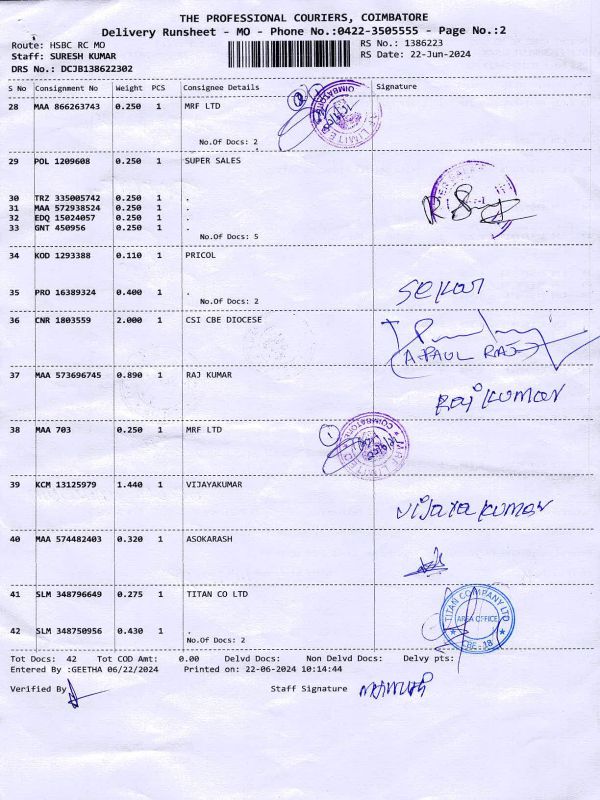 THE PROFESSIONAL COURIERS, COIMBATORE
Delivery Runsheet - MO - Phone No.:0422-3505555 - Page No.:2
Route: HSBC RC MO RS No.: 1386223
Staff: SURESH KUMAR RS Date: 22-Jun-2024
DRS No.: DCJB138622302
S No Consignment No Weight PCS Consignee Details Signature
28 MAA 866263743 0.250 1 MRF LTD
2
No.Of Docs: 2
29 POL 1209608 0.250 1 SUPER SALES
30 TRZ 335005742 0.250 1 .
31 MAA 572938524 0.250 1 .
32 EDQ 15024057 0.250 1 .
33 GNT 450956 0.250 1 .
No.Of Docs: 5
34 KOD 1293388 0.110 1 PRICOL
35 PRO 16389324 0.400 1 .
Sekar
No.Of Docs: 2
36 CNR 1803559 2.000 1 CSI CBE DIOCESE
A.PAUL RAJ
37 MAA 573696745 0.890 1 RAJ KUMAR
Raj kumar
38 MAA 703 0.250 1 MRF LTD
1
COIMBATORE
39 KCM 13125979 1.440 1 VIJAYAKUMAR
Vijaya kumar
40 MAA 574482403 0.320 1 ASOKARASH
41 SLM 348796649 0.275 1 TITAN CO LTD
TITAN COMPANY LTD
AREA OFFICE
CBE-18
42 SLM 348750956 0.430 1 .
No.Of Docs: 2
Tot Docs: 42 Tot COD Amt: 0.00 Delvd Docs: Non Delvd Docs: Delvy pts:
Entered By :GEETHA 06/22/2024 Printed on: 22-06-2024 10:14:44
Verified By Staff Signature